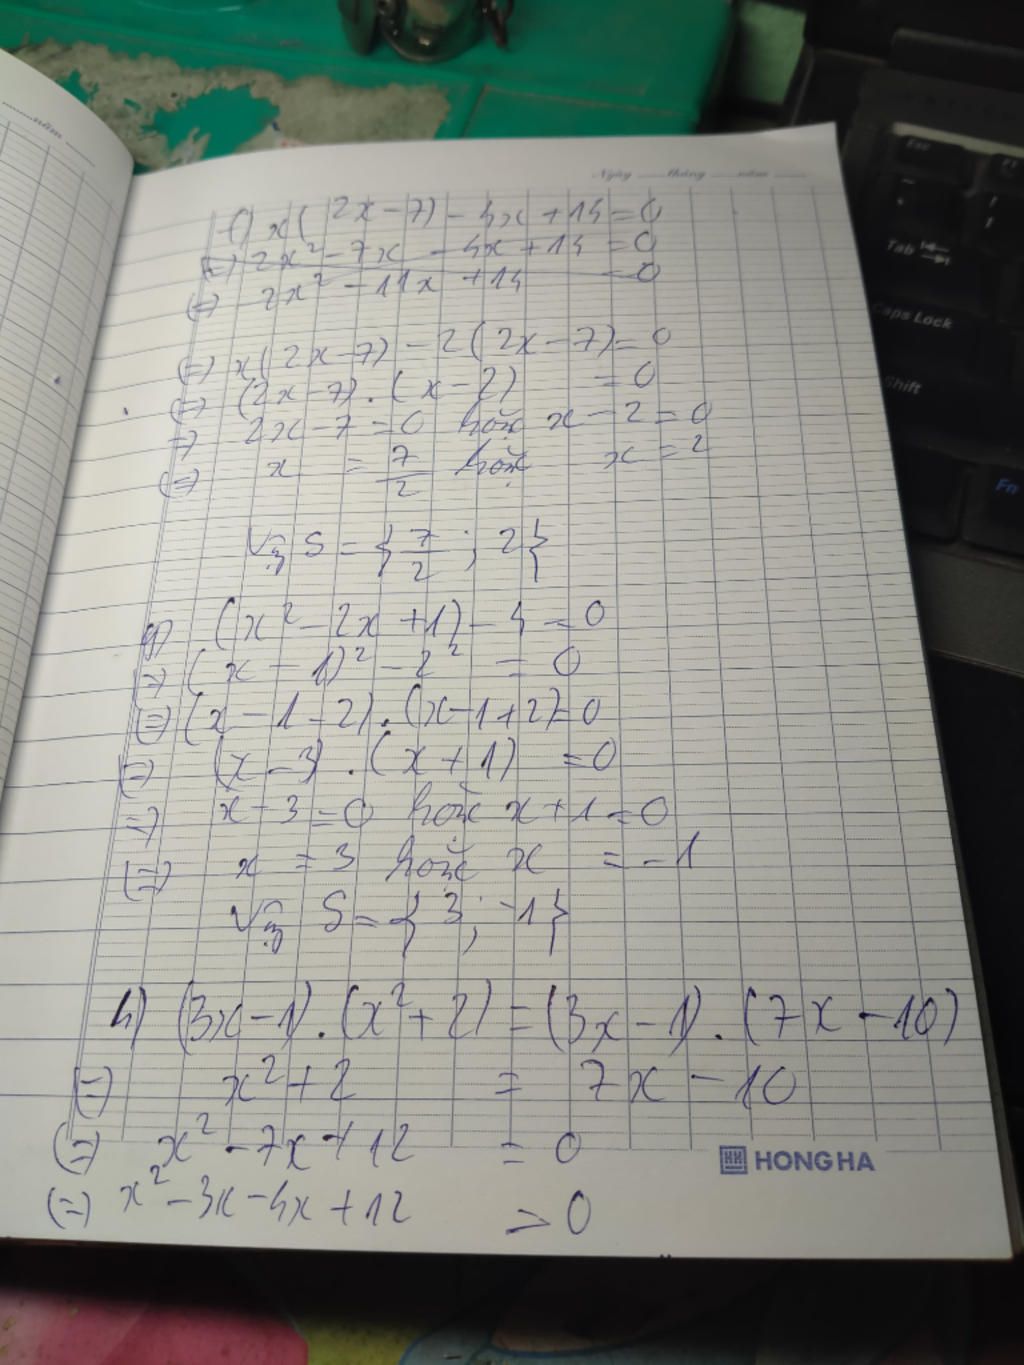 năm
Ngày tháng năm
f) x(2x-7) - 4x + 14 = 0
(=) 2x² - 7x - 4x + 14 = 0
(=) 2x² - 11x + 14 = 0
(=) x(2x-7) - 2(2x-7) = 0
(=) (2x-7).(x-2) = 0
=) 2x-7 = 0 hoặc x-2 = 0
(=) x = 7/2 hoặc x = 2
Vậy S = {7/2 ; 2}
g) (x² - 2x + 1) - 4 = 0
=) (x - 1)² - 2² = 0
(=) (x - 1 - 2).(x - 1 + 2) = 0
(=) (x - 3).(x + 1) = 0
=) x - 3 = 0 hoặc x + 1 = 0
(=) x = 3 hoặc x = -1
Vậy S = {3 ; -1}
h) (3x-1).(x²+2) = (3x-1).(7x-10)
(=) x² + 2 = 7x - 10
(=) x² - 7x + 12 = 0
(=) x² - 3x - 4x + 12 = 0
HONG HA
Esc
F1
Tab
Caps Lock
Shift
Fn